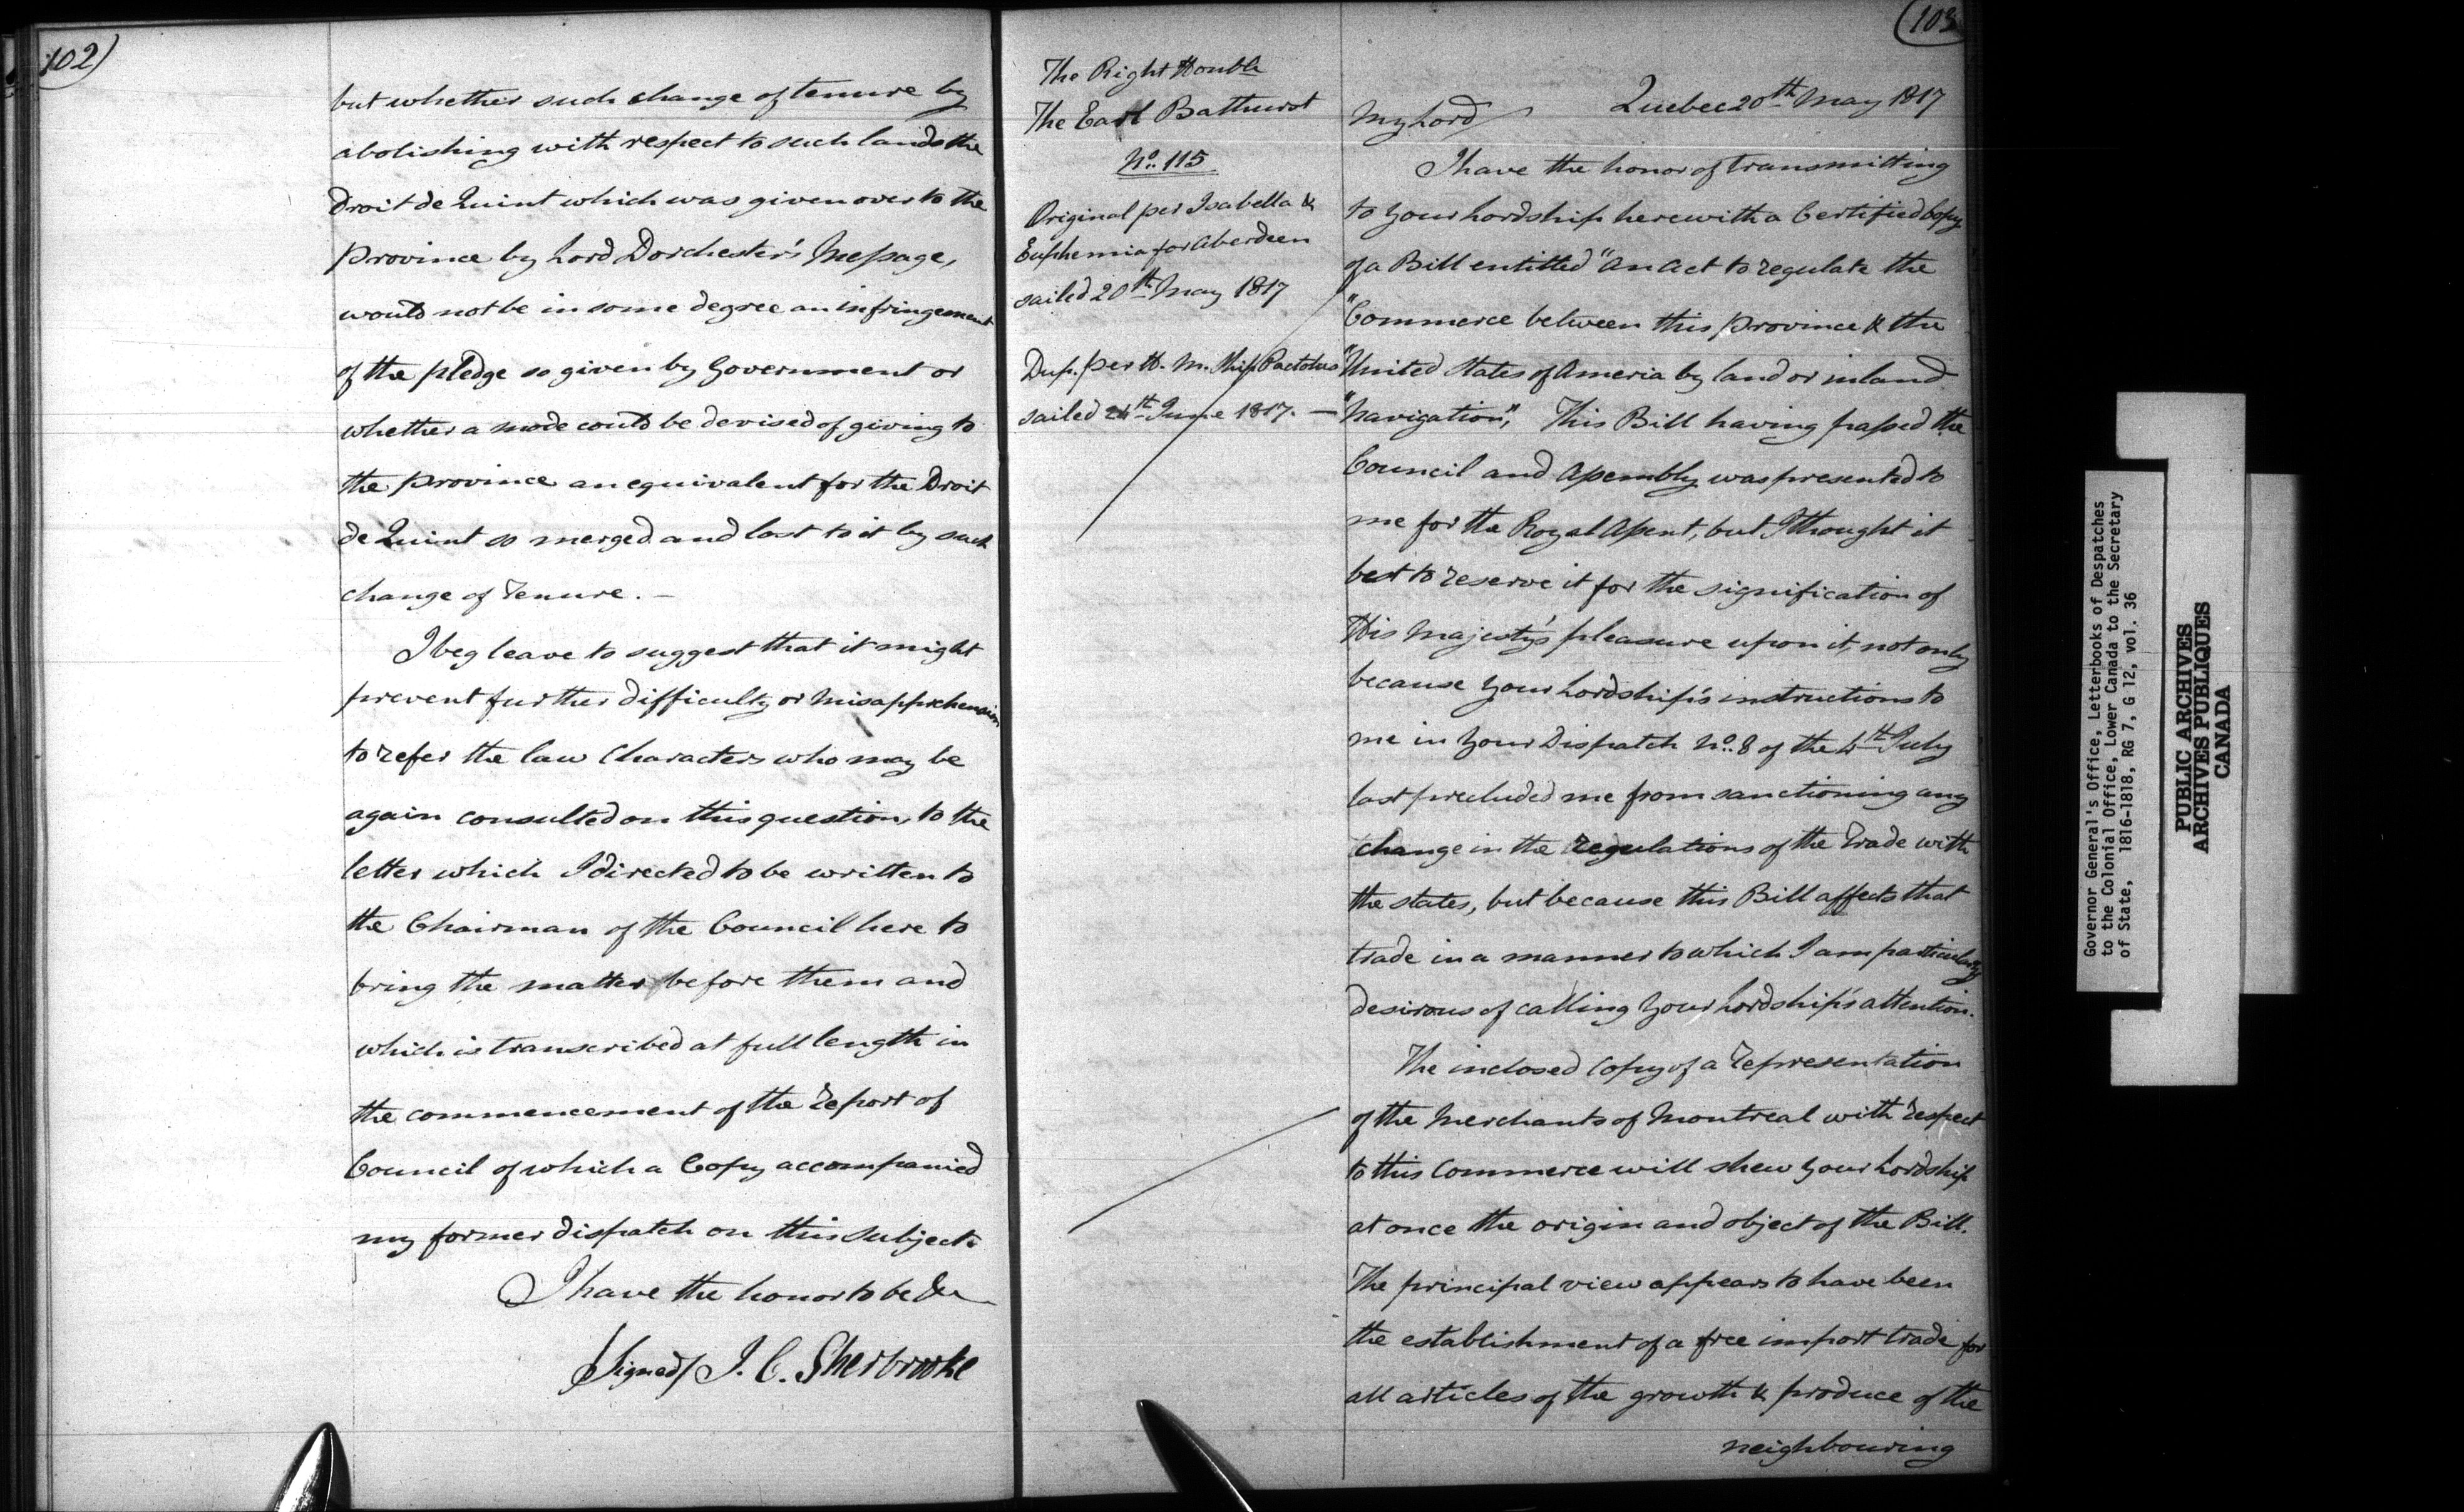 102)
but whether such change of tenure by
abolishing with respect to such lands the
Droit de Quint which was given over to the
Province by Lord Dorchester's Message,
would not be in some degree an infringement
of the pledge so given by Government or
whether a mode could be devised of giving to
the Province an equivalent for the Droit
de Quint so merged and lost to it by such
change of Tenure. —
I beg leave to suggest that it might
prevent further difficulty or misapprehension
to refer the law Characters who may be
again consulted on this question, to the
letter which I directed to be written to
the Chairman of the Council here to
bring the matter before them and
which is transcribed at full length in
the commencement of the Report of
Council of which a Copy accompanied
my former dispatch on this subject.
I have the honor to be &c
/Signed/ J. C. Sherbrooke
(103
The Right Honble
The Earl Bathurst
No. 115
Original per Isabella &
Euphemia for Aberdeen
sailed 20th May 1817
Dup. per H. M. Ship Pactolus
sailed 24th June 1817. —
Quebec 20th May 1817
My Lord
I have the honor of transmitting
to your Lordship herewith a Certified Copy
of a Bill entitled "An Act to regulate the
"Commerce between this Province & the
"United States of Ameria by land or inland
"Navigation", This Bill having passed the
Council and Assembly was presented to
me for the Royal Assent, but I thought it
best to reserve it for the signification of
His Majesty's pleasure upon it, not only
because your Lordship's instructions to
me in your Dispatch No. 8 of the 4th July
last precluded me from sanctioning any
change in the regulations of the trade with
the states, but because this Bill affects that
trade in a manner to which I am particularly
desirous of calling your Lordship's attention.
The inclosed Copy of a representation
of the Merchants of Montreal with respect
to this Commerce will shew your Lordship
at once the origin and object of the Bill.
The principal view appears to have been
the establishment of a free import trade for
all articles of the growth & produce of the
neighbouring
Governor General's Office, Letterbooks of Despatches
to the Colonial Office, Lower Canada to the Secretary
of State, 1816-1818, RG 7, G 12, vol. 36
PUBLIC ARCHIVES
ARCHIVES PUBLIQUES
CANADA